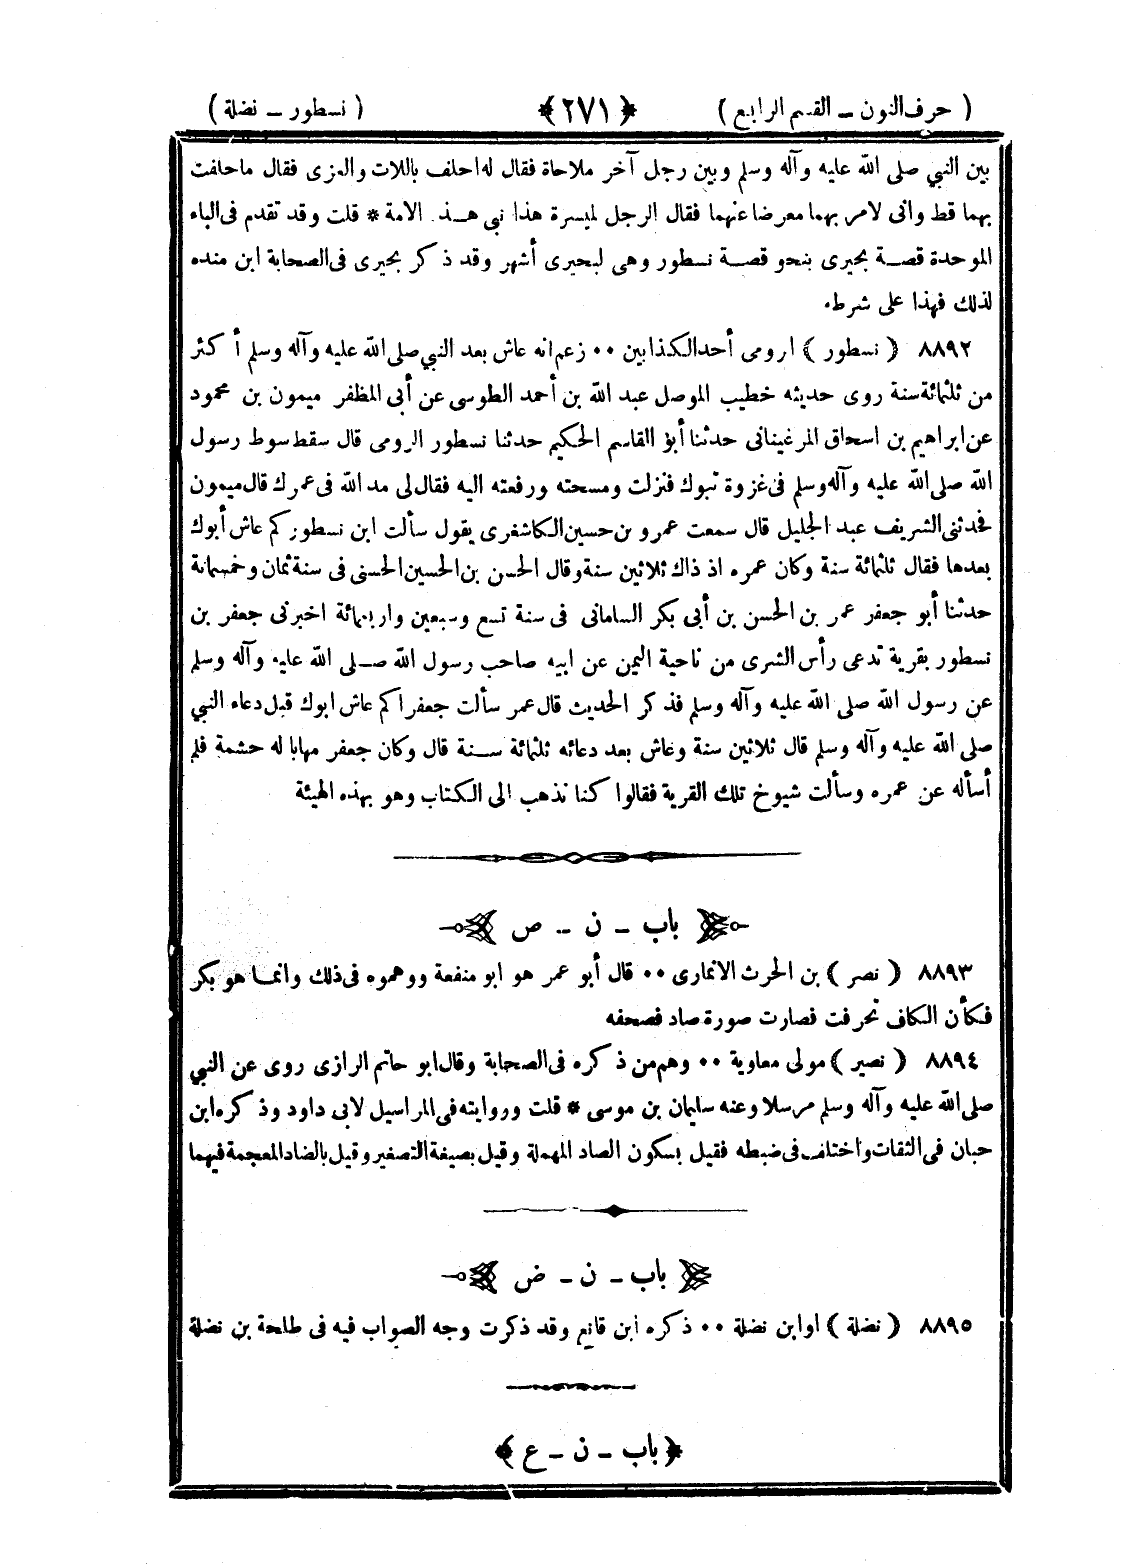 ( حرف النون ــ القسم الرابع ) ﴿ ٢٧١ ﴾ ( نسطور ــ نضلة )
بين النبي صلى الله عليه وآله وسلم وبين رجل آخر ملاحاة فقال له احلف باللات والعزى فقال ماحلفت
بهما قط وانى لامر بهما معرضا عنهما فقال الرجل لميسرة هذا نبى هـذه الامة * قلت وقد تقدم فى الباء
الموحدة قصـة بحيرى بنحو قصـة نسطور وهى لبحيرى أشهر وقد ذكر بحيرى فى الصحابة ابن منده
لذلك فهذا على شرطه
٨٨٩٢ ( نسطور ) الرومى أحد الكذابين ٠٠ زعم انه عاش بعد النبي صلى الله عليه وآله وسلم أكثر
من ثلثمائة سنة روى حديثه خطيب الموصل عبد الله بن أحمد الطوسى عن أبى المظفر ميمون بن محمود
عن ابراهيم بن اسحاق المرغينانى حدثنا أبو القاسم الحكيم حدثنا نسطور الرومى قال سقط سوط رسول
الله صلى الله عليه وآله وسلم فى غزوة تبوك فنزلت ومسحته ورفعته اليه فقال لى مد الله فى عمرك قال ميمون
فحدثنى الشريف عبد الجليل قال سمعت عمرو بن حسين الكاشغرى يقول سألت ابن نسطور كم عاش أبوك
بعدها فقال ثلثمائة سنة وكان عمره اذ ذاك ثلاثين سنة وقال الحسن بن الحسين الحسنى فى سنة ثمان وخمسمائة
حدثنا أبو جعفر عمر بن الحسن بن أبى بكر السامانى فى سنة تسع وسبعين واربعمائة اخبرنى جعفر بن
نسطور بقرية تدعى رأس الشرى من ناحية اليمن عن ابيه صاحب رسول الله صـلى الله عليه وآله وسلم
عن رسول الله صلى الله عليه وآله وسلم فذكر الحديث قال عمر سألت جعفرا كم عاش ابوك قبل دعاء النبي
صلى الله عليه وآله وسلم قال ثلاثين سنة وعاش بعد دعائه ثلثمائة سـنة قال وكان جعفر مهابا له حشمة فلم
أسأله عن عمره وسألت شيوخ تلك القرية فقالوا كنا نذهب الى الكتاب وهو بهذه الهيئة
باب ــ ن ــ ص
٨٨٩٣ ( نصر ) بن الحرث الانمارى ٠٠ قال أبو عمر هو ابو منفعة ووهموه فى ذلك وانمـا هو بكر
فكأن الكاف تحرفت فصارت صورة صاد فصحفه
٨٨٩٤ ( نصير ) مولى معاوية ٠٠ وهم من ذكره فى الصحابة وقال ابو حاتم الرازى روى عن النبي
صلى الله عليه وآله وسلم مرسلا وعنه سليمان بن موسى * قلت وروايته فى المراسيل لابى داود وذكره ابن
حبان فى الثقات واختلف فى ضبطه فقيل بسكون الصاد المهملة وقيل بصيغة التصغير وقيل بالضاد المعجمة فيهما
باب ــ ن ــ ض
٨٨٩٥ ( نضلة ) او ابن نضلة ٠٠ ذكره ابن قانع وقد ذكرت وجه الصواب فيه فى طلحة بن نضلة
﴿ باب ــ ن ــ ع ﴾